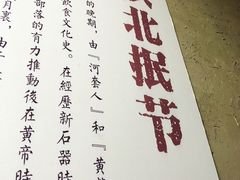 北抿节
的晚期，由『河套人』和『黄
飲食文化史。在經歷新石器時
部落的育力推動後在黄帝時
月裏，由